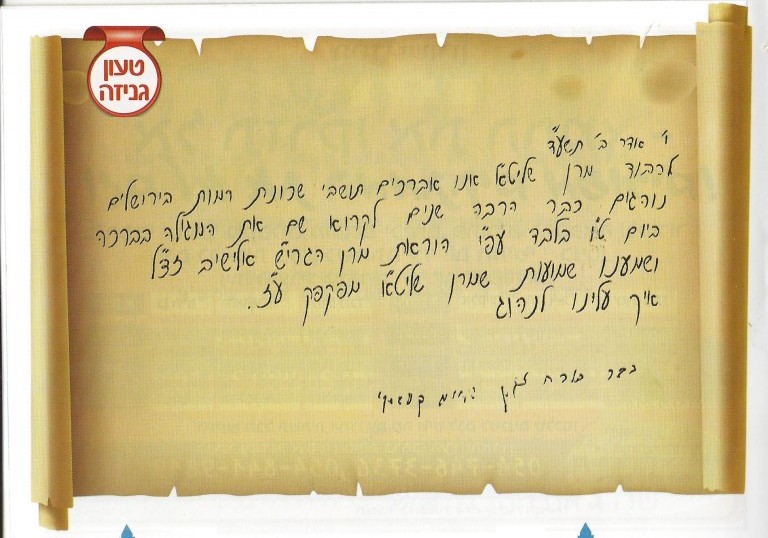 טעון
גניזה
ו' אדר ב' תשע"ד
לכבוד מרן שליט"א אנו אברכים תושבי שכונת רמות בירושלים
נוהגים כבר הרבה שנים לקרוא שם את המגילה בברכה
ביום ט"ו בלבד עפ"י הוראת מרן הגרי"ש אלישיב זצ"ל
ושמענו שמועות שמרן שליט"א מפקפק ע"ז.
איך עלינו לנהוג
כבר